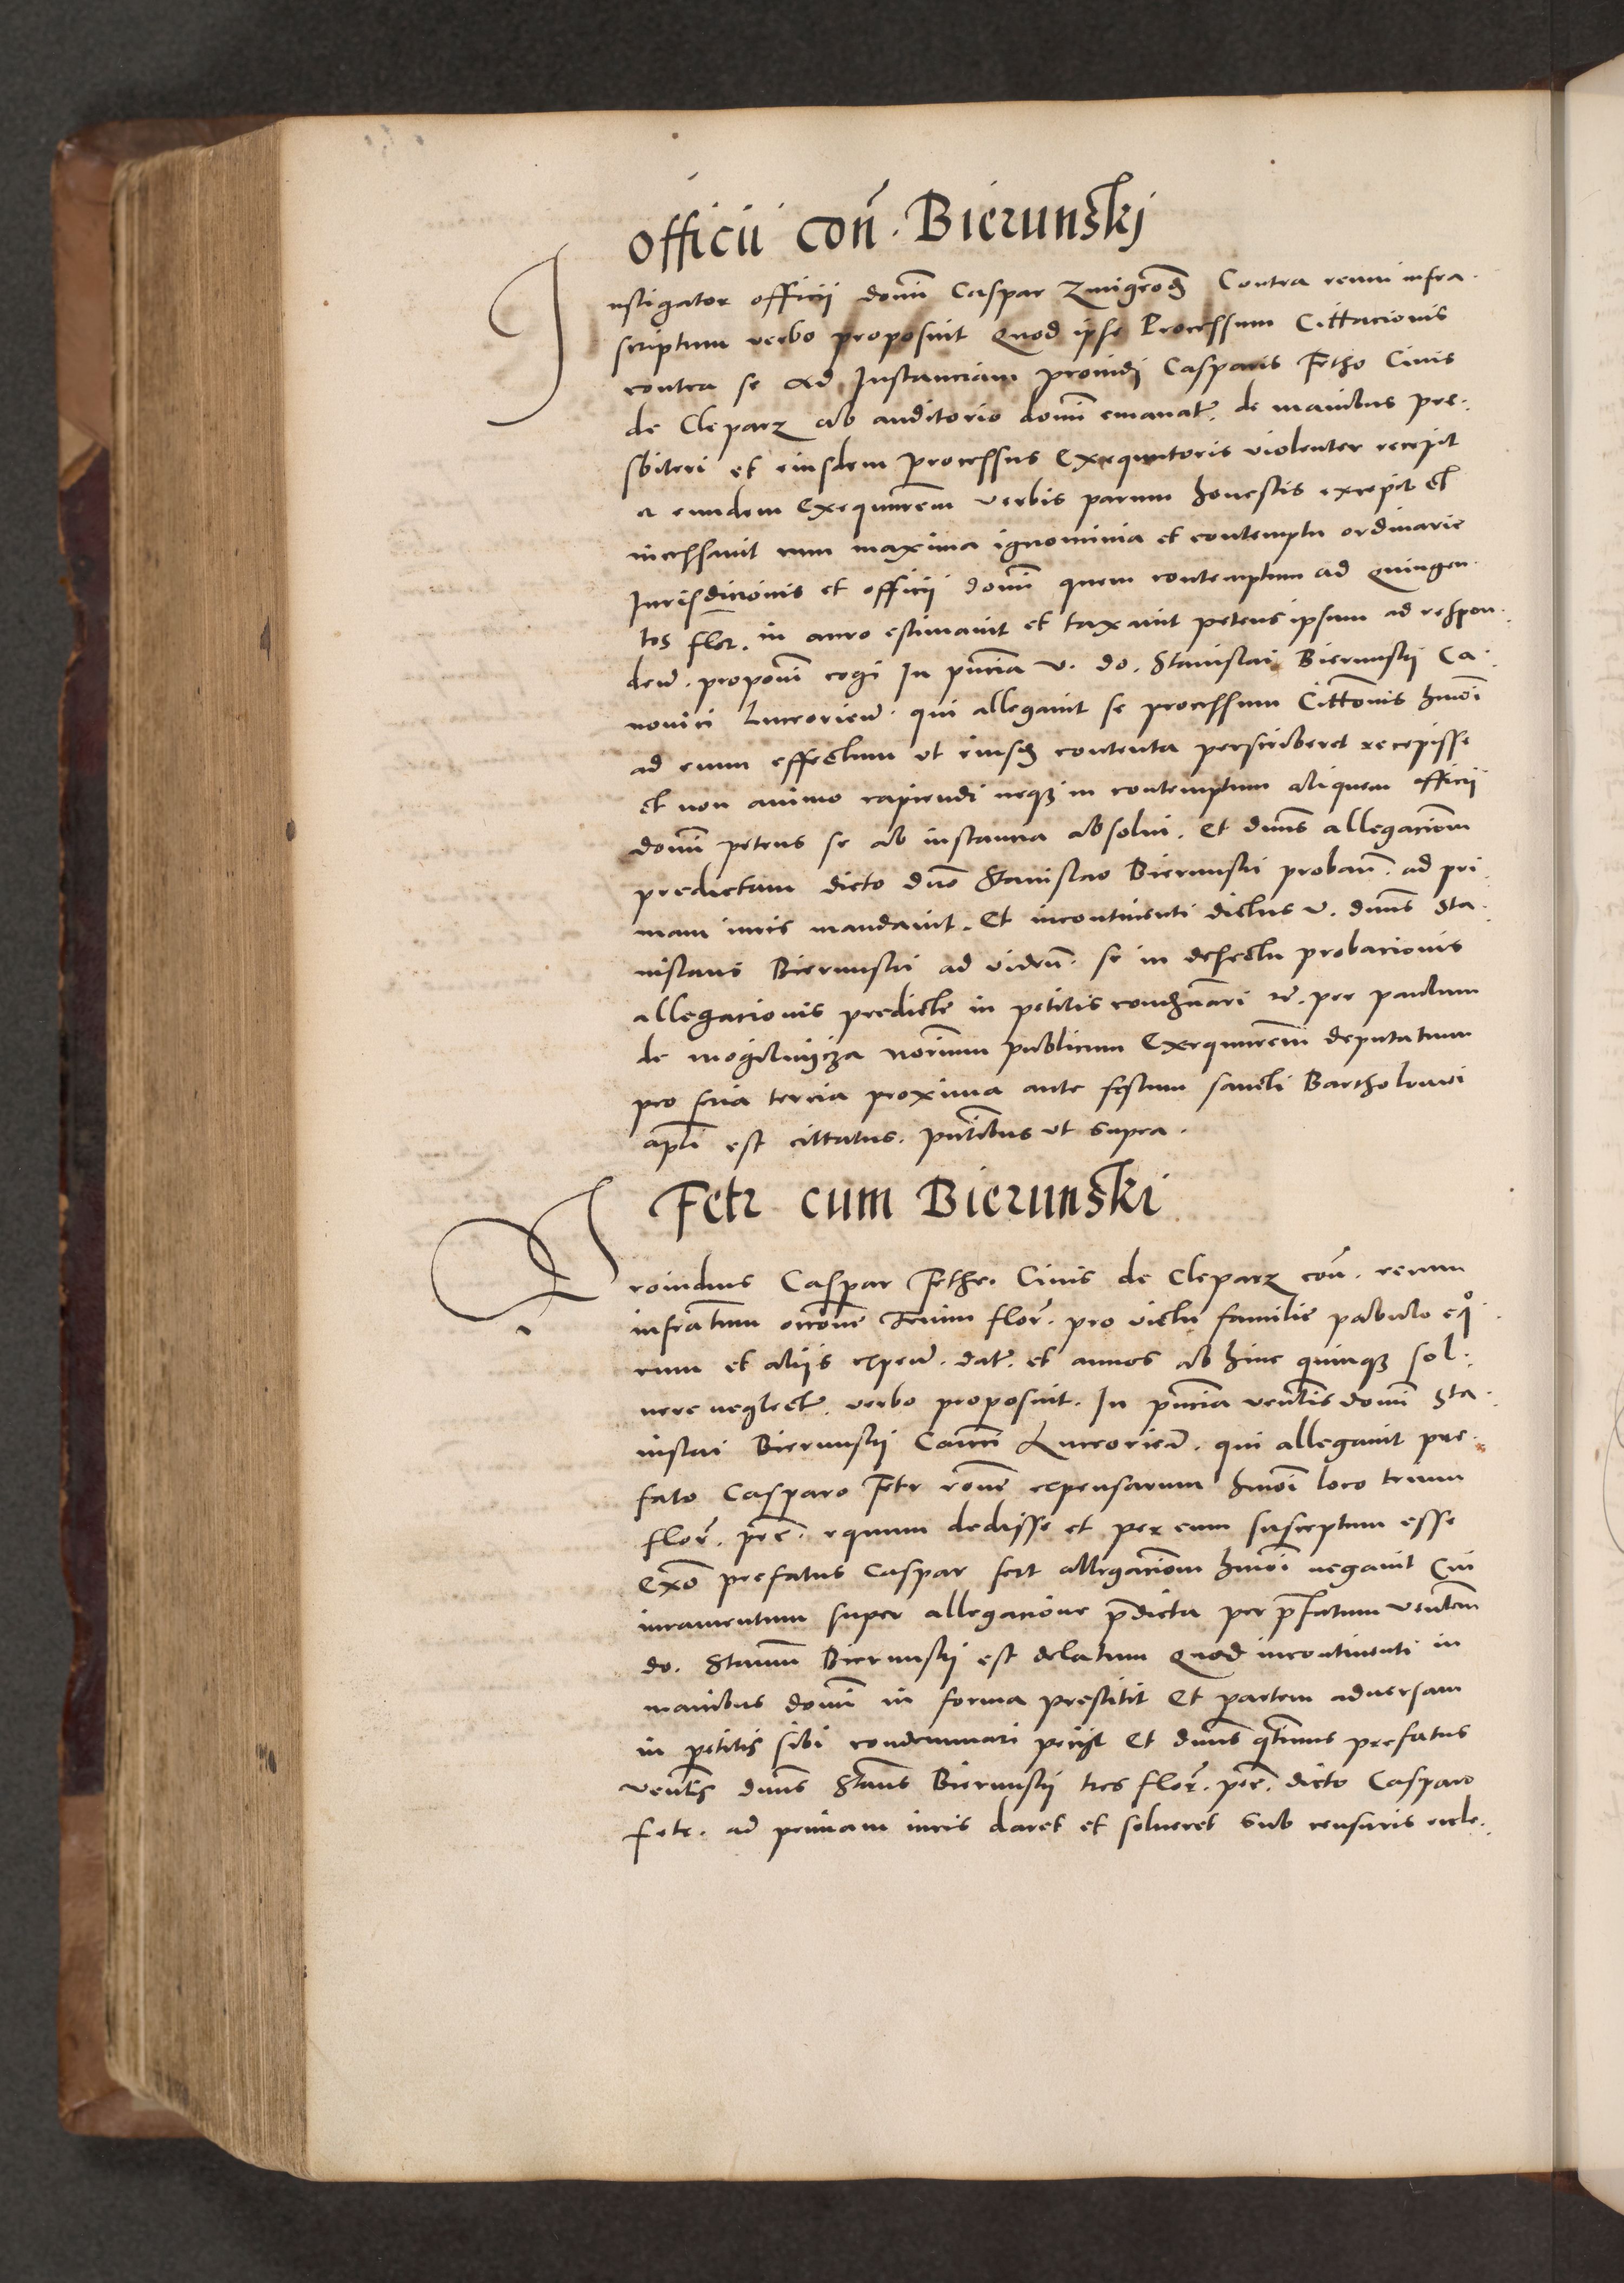 officii con̄. Bierunskj
Instigator officii domi͂ Caspar Zmigrod͂ Contra reum infra-
scriptum verbo proposuit Quod ipse Processum Cittacionis
contra se ad Instanciam prouidi Casparis Fetho Ciuis
de Cleparz ab auditorio domi͂ emanat͂. de manibus pre-
sbiteri et eiusdem processus Exequutoris violenter recepit
et eundem Exequut͂rem verbis parum honestis excepit et
incessauit cum maxima ignominia et contemptu ordinarie
Jurisdicionis et officii domi͂ quem contemptum ad Quingen-
tos flor. in auro estimauit et taxauit petens ipsum ad respon-
den͂. proposi͂ cogi In pn͂cia v. do. Stanislai Bierunskj Ca-
nonici Luceorien͂. qui allegauit se processum Citt͂onis hm͂oi
ad eum effectum vt eiusd͂ contenta perscriberet recepisse
et non animo rapiendi neq͂ in contemptum aliquem officii
domi͂ petens se ab instancia absolui. Et dn͂us allegacio͂em
predictam dicto dn͂o Stanislao Bierunski proban͂. ad pri-
mam iuris mandauit. Et incontinenti dictus v. dn͂us Sta-
nislaus Bierunski ad viden͂. se in defectu probacionis
allegacionis predicte in petitis condemn͂ari rc͂. per paulum
de mogilnicza nor͂ium publicum Exequut͂rem deputatum
pro feria tercia proxima ante festum sancti Bartholomei
apl͂i est cittatus. pn͂tibus vt supra.
Fetr cum Bierunski
Prouidus Caspar Fethr. Ciuis de Cleparz con͂. reum
infras͂tum occ͂one Trium flor͂. pro victu familie pabulo eqº-
rum et aliis expen͂. dat͂. et annos ab hinc quinq͂ sol-
uere neglect͂. verbo proposuit. In pn͂cia ven͂lis domi͂ Sta-
nislai Bierunskj Can͂ci Luceorien͂. qui allegauit pre-
fato Casparo Fetr ro͂ne expensarum hm͂oi loco trium
flor͂. pre͂. equum dedisse et per eum susceptum esse
Ex͂o prefatus Caspar fert allegacio͂em hm͂oi negauit Cui
iuramentum super allegacione p͂dicta per p͂fatum ven͂lem
do. Stan͂um Bierunskj est delatum Quod incontinenti in
manibus domi͂ in forma prestitit Et partem aduersam
in petitis sibi condemnari peciit Et dn͂us q͂tinus prefatus
ven͂lis dn͂us Stan͂s Bierunskj tres flor͂. pec͂. dicto Casparo
fetr. ad primam iuris daret et solueret sub censuris eccle-